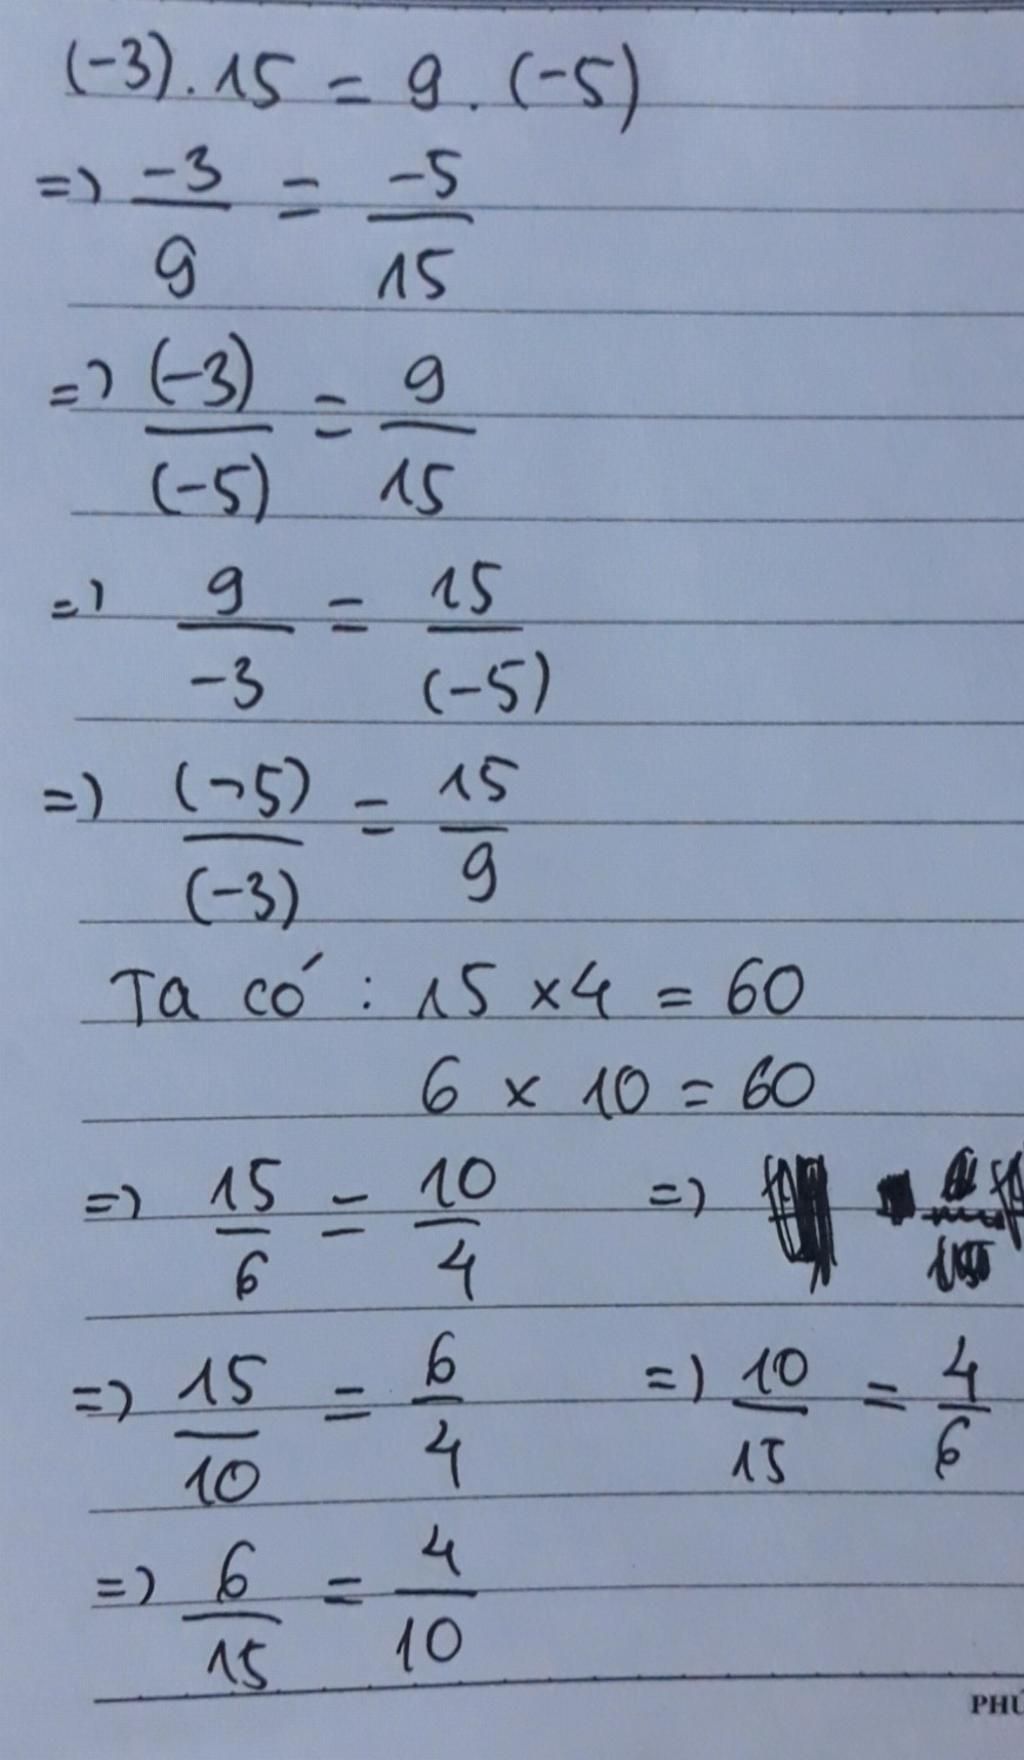 (-3) . 15 = 9 . (-5)
=> -3/9 = -5/15
=> (-3)/(-5) = 9/15
=> 9/-3 = 15/(-5)
=> (-5)/(-3) = 15/9
Ta có : 15 x 4 = 60
6 x 10 = 60
=> 15/6 = 10/4 =>
=> 15/10 = 6/4 => 10/15 = 4/6
=> 6/15 = 4/10
PHÚ